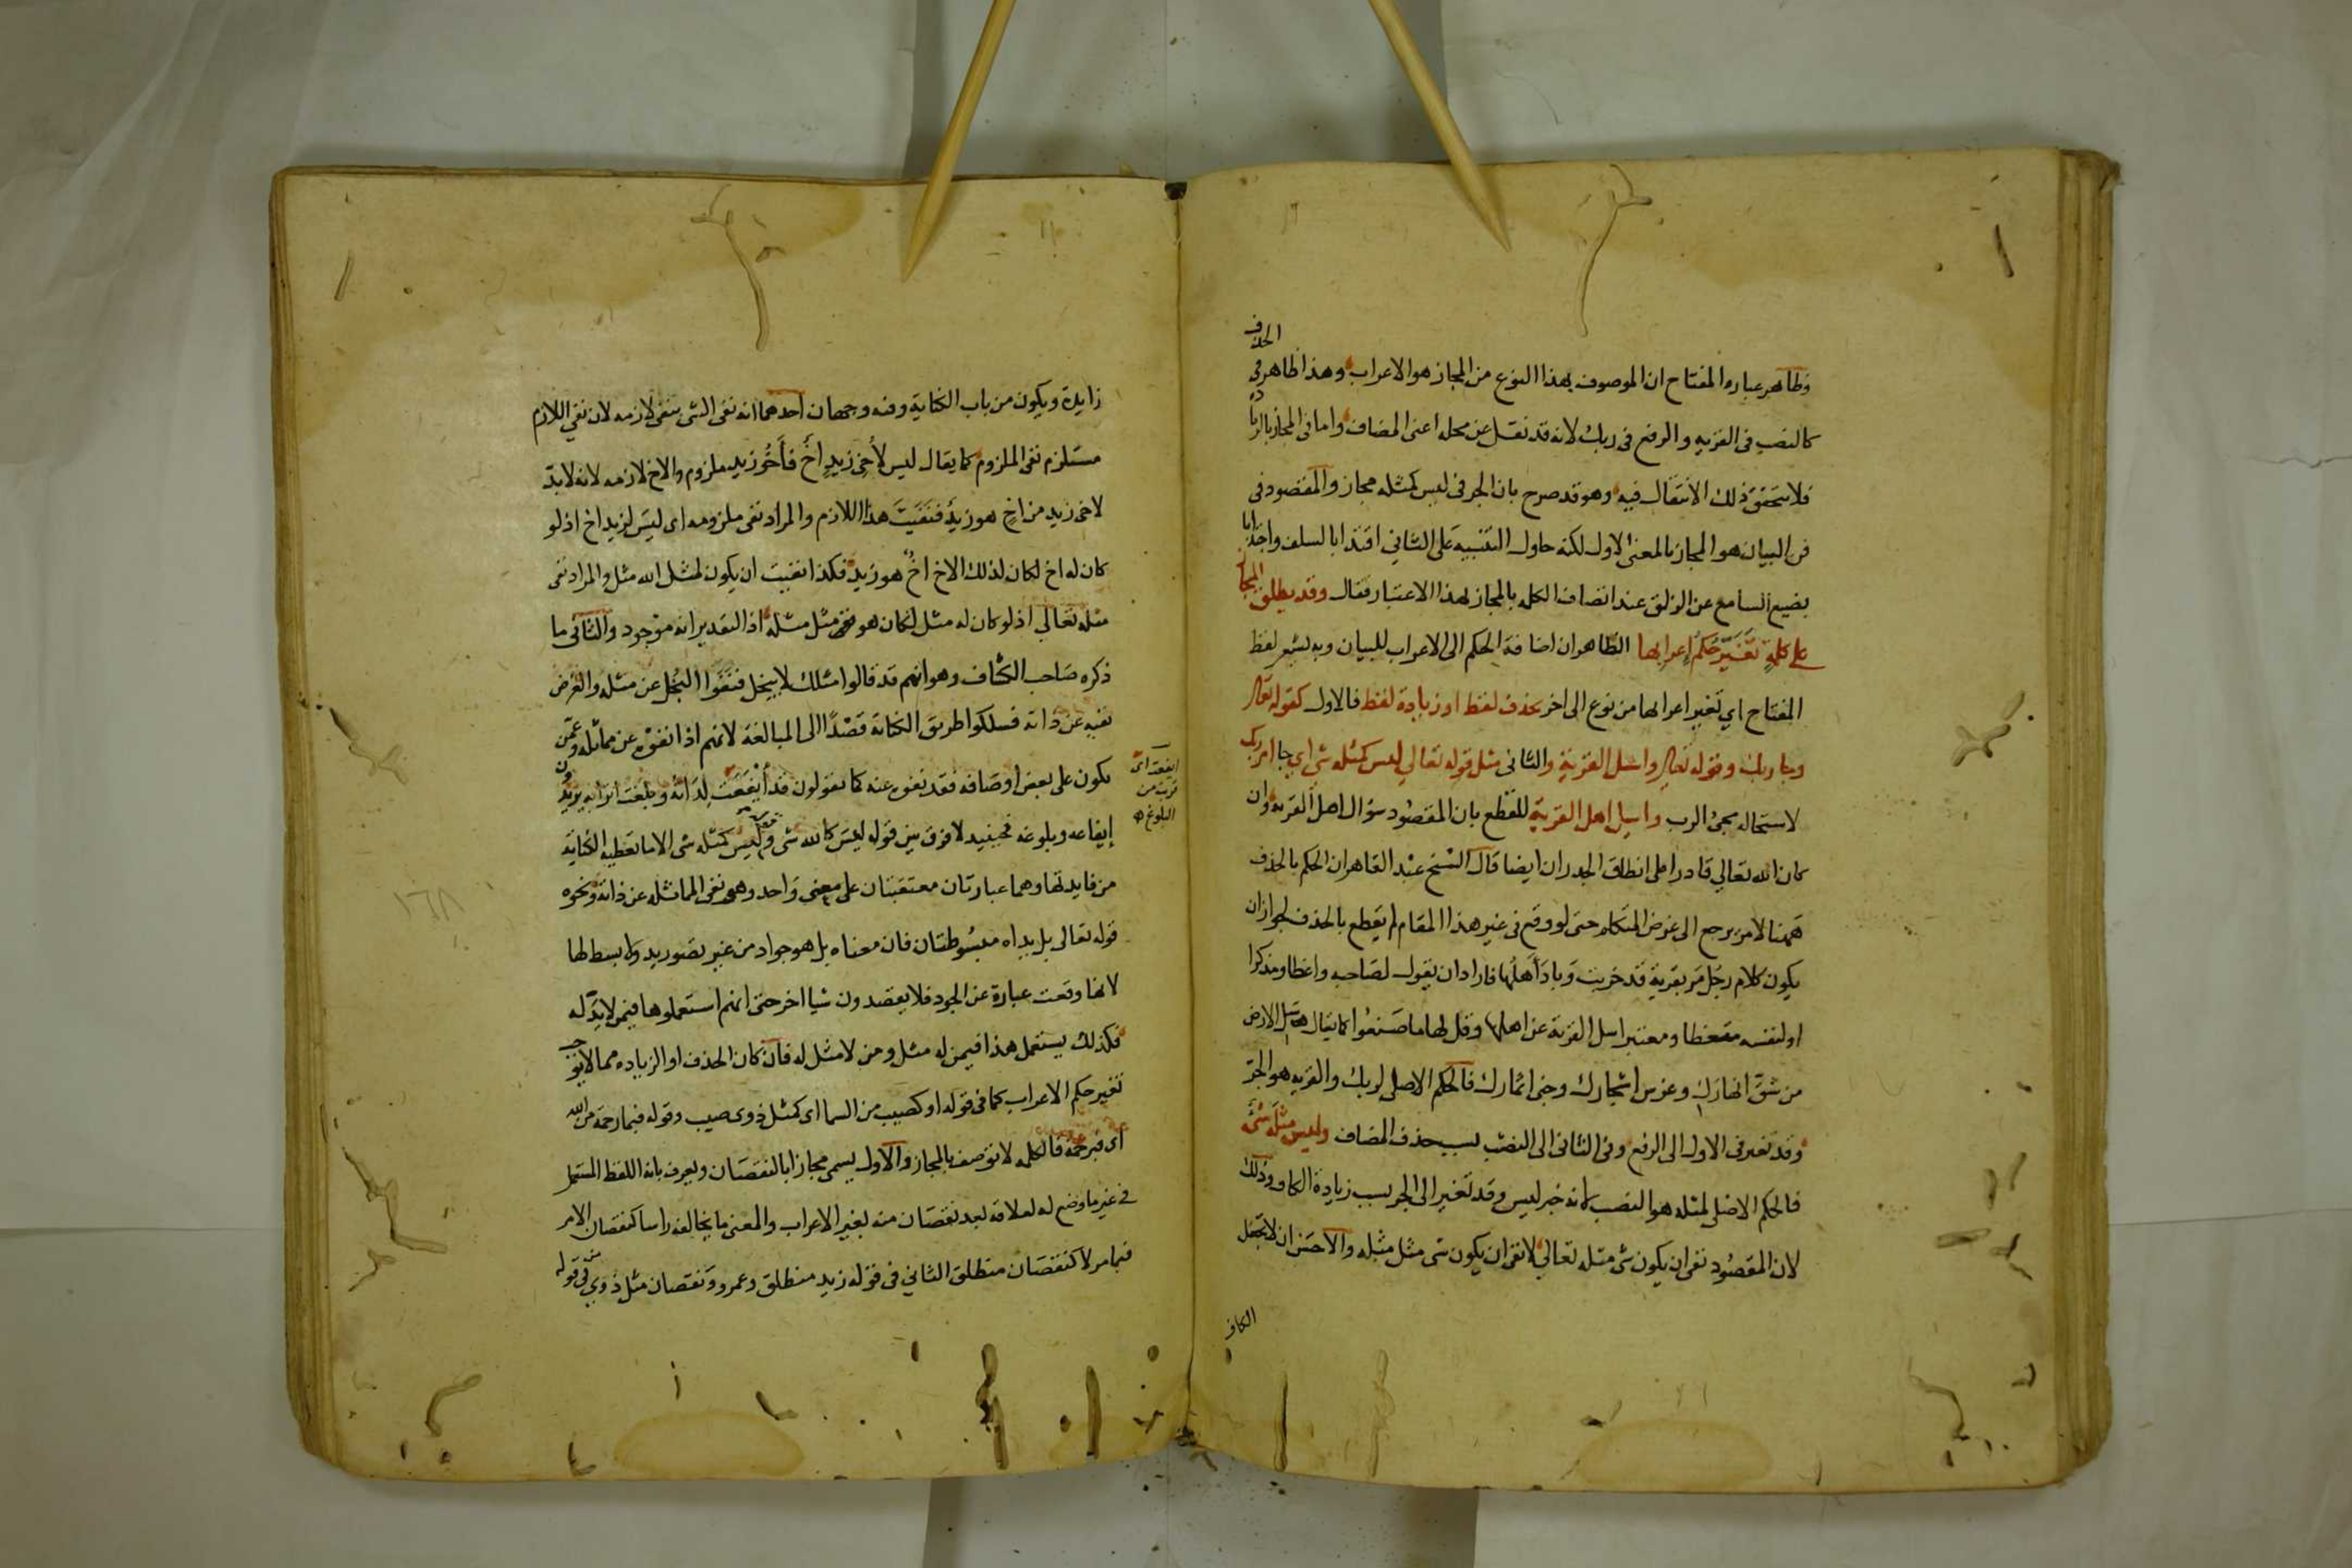 الحذف
وظاهر عباره المفتاح ان الموصوف بهذا النوع من المجاز هو الاعراب وهذا ظاهر في
كالنصب في القريه والرفع في ربك لانه قد نقل عن محله اعنى المضاف واما في المجاز بالزيادة
فلا يتحقق ذلك الانتقال فيه وهو قد صرح بان الجر في ليس كمثله مجاز والمقصود في
فن البيان هو المجاز بالمعنى الاول لكنه حاول التنبيه على الثاني اقتداء بالسلف واجتذابا
بضبع السامع عن الزلق عند اتصاف الكلمه بالمجاز بهذا الاعتبار فقال وقد يطلق المجاز
على كلمة تغير حكم اعرابها الظاهر ان اضافة الحكم الى الاعراب للبيان وبه يشعر لفظ
المفتاح اي تغير اعرابها من نوع الى اخر بحذف لفظ او زيادة لفظ فالاول كقوله تعالى
وجا ربك وقوله تعالى واسئل القرية والثانى مثل قوله تعالى ليس كمثله شى اي جا امر ربك
لاستحاله مجئ الرب واسئل اهل القرية للقطع بان المقصود سؤال اهل القريه وان
كان الله تعالى قادرا على انطاق الجدران ايضا قال الشيخ عبد القاهر ان الحكم بالحذف
ههنا لامر يرجع الى غرض المتكلم حتى لو وقع في غير هذا المقام لم يقطع بالحذف لجواز ان
يكون كلام رجل مر بقرية قد خربت وباد اهلها فاراد ان يقول لصاحبه واعظا ومذكرا
او لنفسه متعظا ومعتبرا سل القرية عن اهلها وقل لها ما صنعوا كما يقال سل الارض
من شق انهارك وغرس اشجارك وجنى اثمارك فالحكم الاصلى لربك والقريه هو الجر
وقد تغير في الاول الى الرفع وفي الثانى الى النصب بسبب حذف المضاف وليس مثله شئ
فالحكم الاصلى لمثله هو النصب لانه خبر ليس وقد تغير الى الجر بسبب زيادة الكاف وذلك
لان المقصود نفى ان يكون شئ مثله تعالى لا نفى ان يكون شى مثل مثله والاحسن ان لا تجعل
الكاف
زايدة ويكون من باب الكناية وفيه وجهان احدهما انه نفى الشى بنفى لازمه لان نفى اللازم
مستلزم نفى الملزوم كما يقال ليس لأخى زيد اخ فأخو زيد ملزوم والاخ لازمه لانه لا بد
لاخى زيد من اخ هو زيد فنفيت هذا اللازم والمراد نفى ملزومه اى ليس لزيد اخ اذ لو
كان له اخ لكان لذلك الاخ اخ هو زيد فكذا نفيت ان يكون لمثل الله مثل والمراد نفى
مثله تعالى اذ لو كان له مثل لكان هو مثل مثله اذ التقدير انه موجود والثانى ما
ذكره صاحب الكشاف وهو انهم قد قالوا مثلك لا يبخل فنفوا البخل عن مثله والغرض
نفيه عن ذاته فسلكوا طريق الكناية قصدا الى المبالغة لانهم اذا نفوه عن مماثله وعمن
يكون على بعض اوصافه فقد نفوه عنه كما يقولون قد أيفعت لداته وبلغت اترابه يريدون
ايفعت اى
قربت من
البلوغ
إيفاعه وبلوغه فحينيذ لا فرق بين قوله ليس كالله شى وليس كمثله شى الا ما تعطيه الكناية
من فايدتها وهما عبارتان معتقبتان على معنى واحد وهو نفى المماثله عن ذاته ونحوه
قوله تعالى بل يداه مبسوطتان فان معناه بل هو جواد من غير تصور يد ولا بسط لها
لانها وقعت عبارة عن الجود فلا يقصدون شيا اخر حتى انهم استعملوها فيمن لا يد له
فكذلك يستعمل هذا فيمن له مثل ومن لا مثل له فان كان الحذف او الزياده مما لا يوجب
تغير حكم الاعراب كما في قوله او كصيب من السما اى كمثل ذوى صيب وقوله فبما رحمة من الله
اى فبرحمة فالكلمه لا توصف بالمجاز والاول يسمى مجازا بالنقصان ويعرف بانه اللفظ المستعمل
في غير ما وضع له لعلاقه بعد نقصان منه يغير الاعراب والمعنى ما يخالفه راسا كنقصان الامر
فيما مر لا كنقصان منطلق الثاني في قوله زيد منطلق وعمرو ونقصان مثل ذوي من في قوله
١٦٨